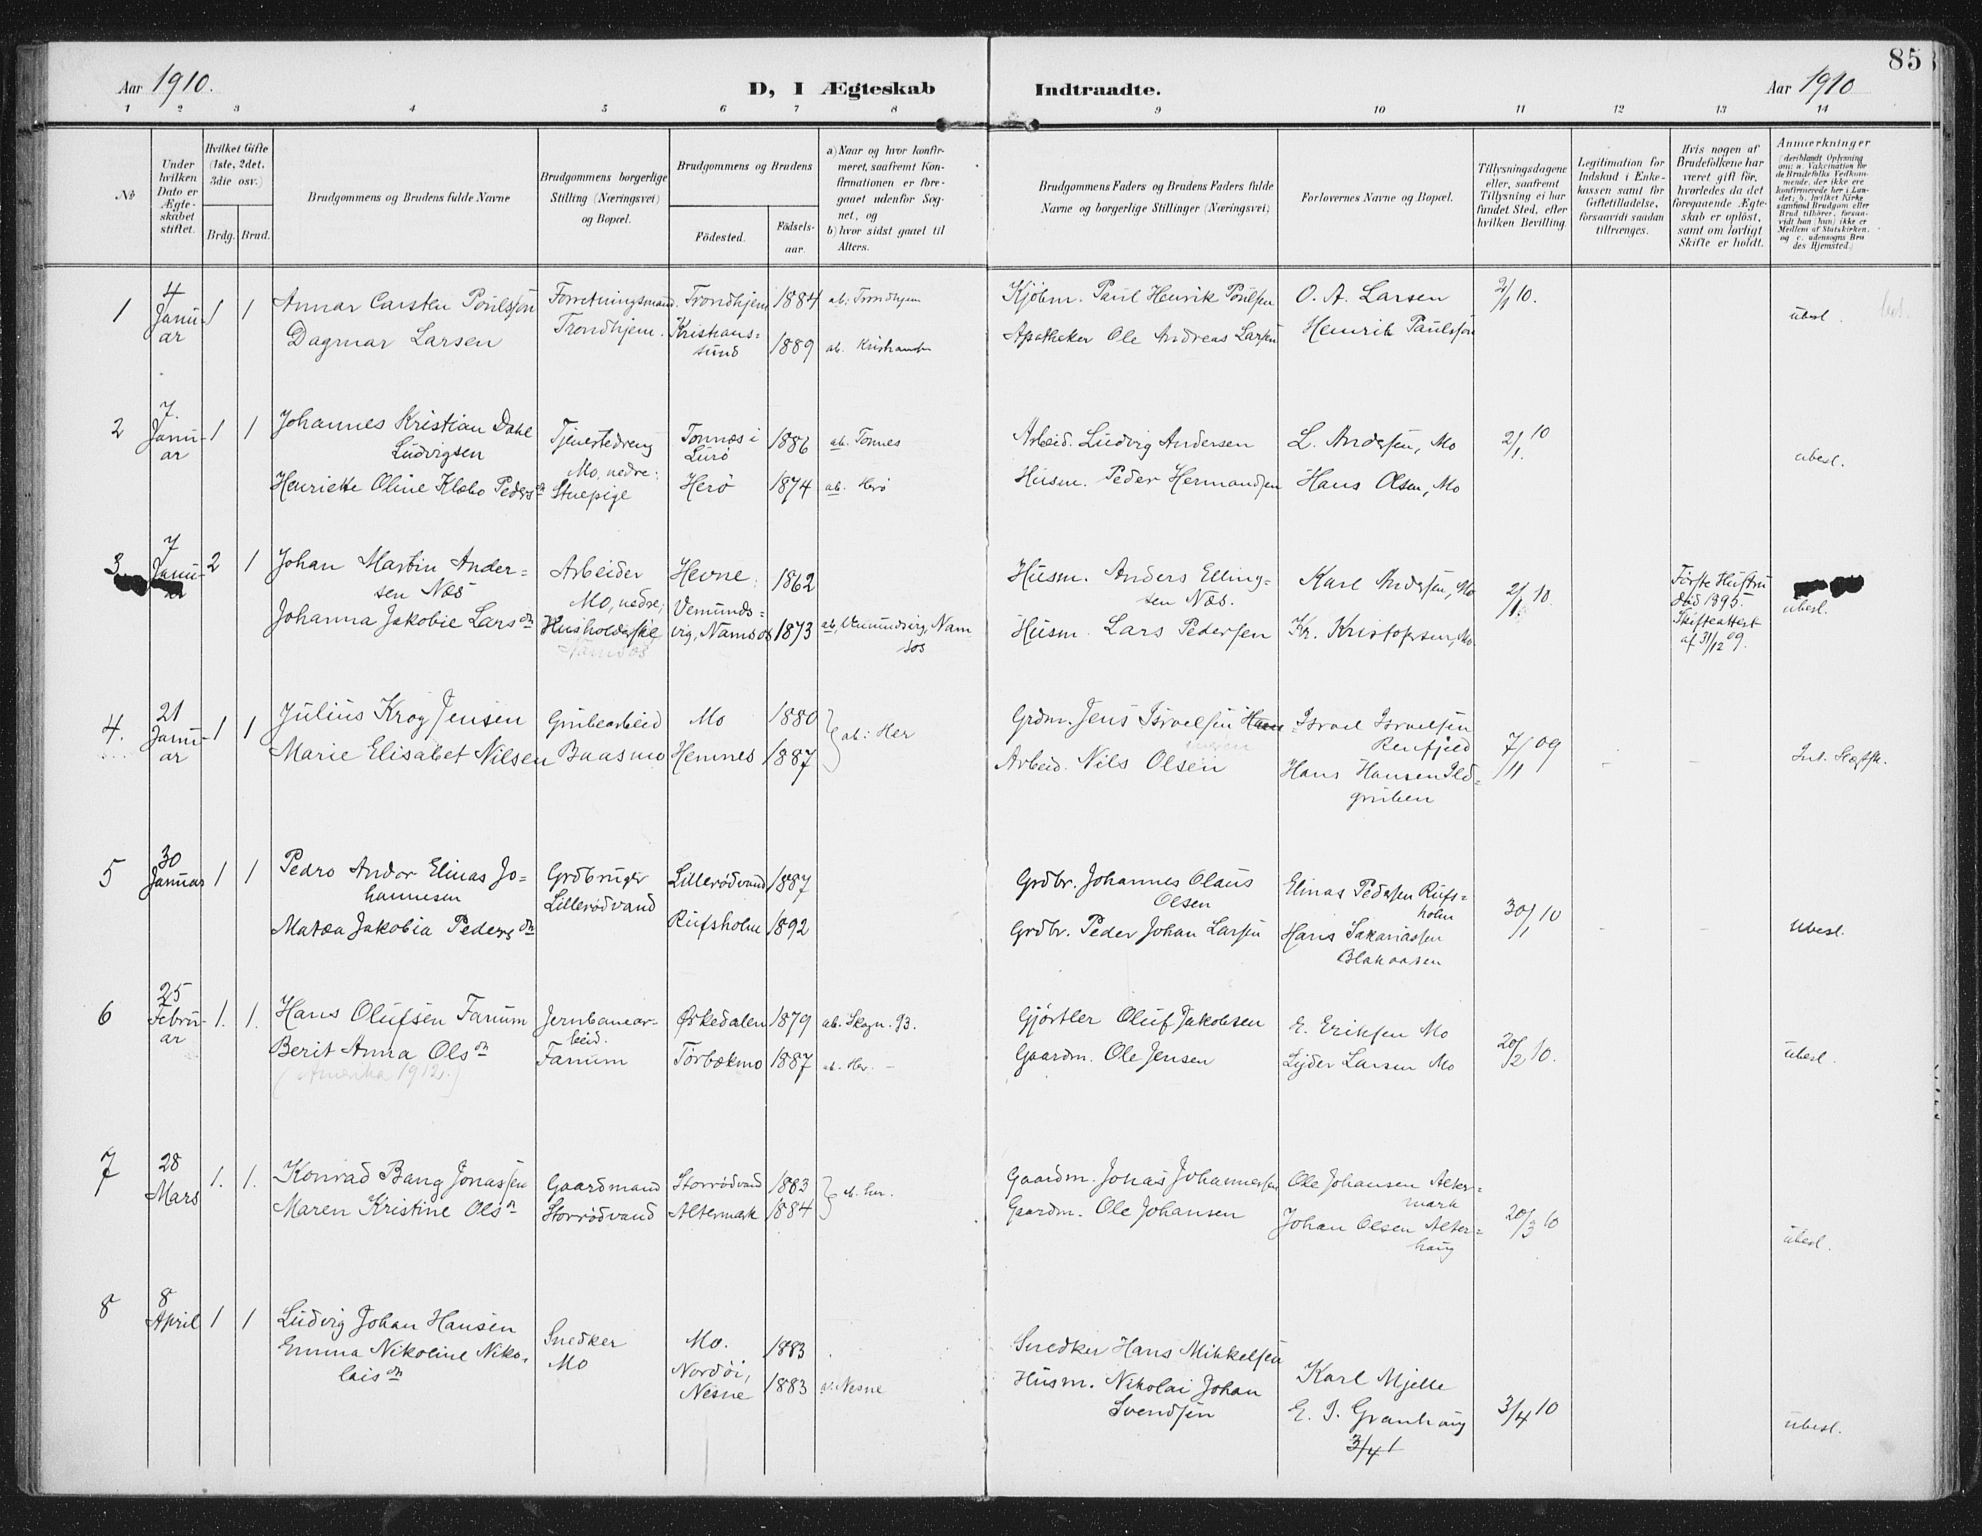 85
Aar 1910.
D, I Ægteskab Indtraadte.
Aar 1910
1 2 3 4 5 6 7 8 9 10 11 12 13 14
No
Under hvilken Dato er Ægteskabet stiftet.
Hvilket Gifte (1ste, 2det. 3die osv.)
Brdg. Brud.
Brudgommens og Brudens fulde Navne
Brudgommens borgerlige Stilling (Næringsvei) og Bopæl.
Brudgommens og Brudens
Fødested.
Fødselsaar.
a) Naar og hvor konfirmeret, saafremt Konfirmationen er foregaaet udenfor Sognet, og
b) hvor sidst gaaet til Alters.
Brudgommens Faders og Brudens Faders fulde Navne og borgerlige Stillinger (Næringsvei)
Forlovernes Navne og Bopæl.
Tillysningsdagene eller, saafremt Tillysning ei har fundet Sted, efter hvilken Bevilling.
Legitimation for Indskud i Enkekassen samt for Giftetilladelse, forsaavidt saadan tiltrænges.
Hvis nogen af Brudefolkene har været gift før, hvorledes da det foregaaende Ægteskab er opløst, samt om lovligt Skifte er holdt.
Anmærkninger
(deriblandt Oplysning om: a. Vakcination for de Brudefolks Vedkommende, der ikke ere konfirmerede her i Landet; b. hvilket Kirkesamfund Brudgom eller Brud tilhører, forsaavidt han (hun) ikke er Medlem af Statskirken, og c. udensogns Brudes Hjemsted.)
1 4 Januar 1 1 Annar Carsten Poulssøn Forretningsmand. Trondhjem 1884 ab: Trondhjem Kjøbm. Paul Henrik Poulsen O. A. Larsen 2/1 10. ubesl.
Dagmar Larsen Trondhjem. Kristianssund 1889 ab. Kristianssu Apotheker Ole Andreas Larsen Henrik Paulssøn
2 7. Januar 1 1 Johannes Kristian Dahl Ludvigsen Tjenestedreng Mo, nedre: Tonnæs i Lurø 1886 ab. Tonnes Arbeid. Ludvig Andersen L. Andersen, Mo 2/1. 10 ubesl.
Henriette Oline Klæbo Pedersdn Stuepige Herø 1874 ab. Herø Husm. Peder Hermandsen Hans Olsen, Mo
3 7 Januar 2 1 Johan Martin Andersen Næs Arbeider Mo, nedre; Hevne. 1862 Husm. Anders Ellingsen Næs. Karl Andersen, Mo 2/1. 10. Første Hustru død 1895. Skifteattest af 31/12 09. ubesl.
Johanna Jakobie Larsdn Husholderske Namsos Vemundsvig, Namsos 1873 ab, Vemundsvig, Namsos Husm. Lars Pedersen Kr. Kristofersen, Mo
4. 21 Januar 1 1 Julius Krog Jensen Grubearbeid Mo 1880 ab: Her Grdm. Jens Israelsen Israel Israelsen Renfjeld 7/11 09 - -
Marie Elisabet Nilsen Baasmo Hemnes 1887 Arbeid. Nils Olsen Hans Hansen Ildgruben
5 30 Januar 1 1 Pedro Andor Elinas Johannesen Grdbruger Lillerødvand Lillerødvand 1887 Grdbr. Johannes Olaus Olsen Elinas Pedersen Rufsholm 30/1 10 - - ubesl.
Matæa Jakobia Pedersdn Rufsholm 1892 Grdbr. Peder Johan Larsen Hans Sakariassen Blakaasen
6 25 Februar 1. 1. Hans Olufsen Fanum Jernbanearbeid. Ørkedalen 1879 ab. Skogn. 93. Gjørtler Oluf Jakobsen E. Eriksen Mo 20/2 10. ubesl.
Berit Anna Olsdn Fanum Torbækmo 1887 ab. Her. - Gaardm. Ole Jensen Lyder Larsen Mo
(Amerika 1912.)
7 28 Mars 1. 1. Konrad Bang Jonassen Gaardmand Storrødvand 1883 ab. her. Gaardm. Jonas Johannesen Ole Johansen Altermark 20/3 10 ubesl.
Maren Kristine Olsdn Storrødvand Altermark 1884 Gaardm. Ole Johansen Johan Olsen Alterhaug
8 8 April 1 1 Ludvig Johan Hansen Snedker Mo. 1883 Snedker Hans Mikkelsen Karl Mjelle 3/4 10 ubesl.
Emma Nikoline Nikolaisdn Mo Nordøi, Nesne 1883 a: Nesne Husm. Nikolai Johan Svendsen E. J. Granhaug
3/4 1